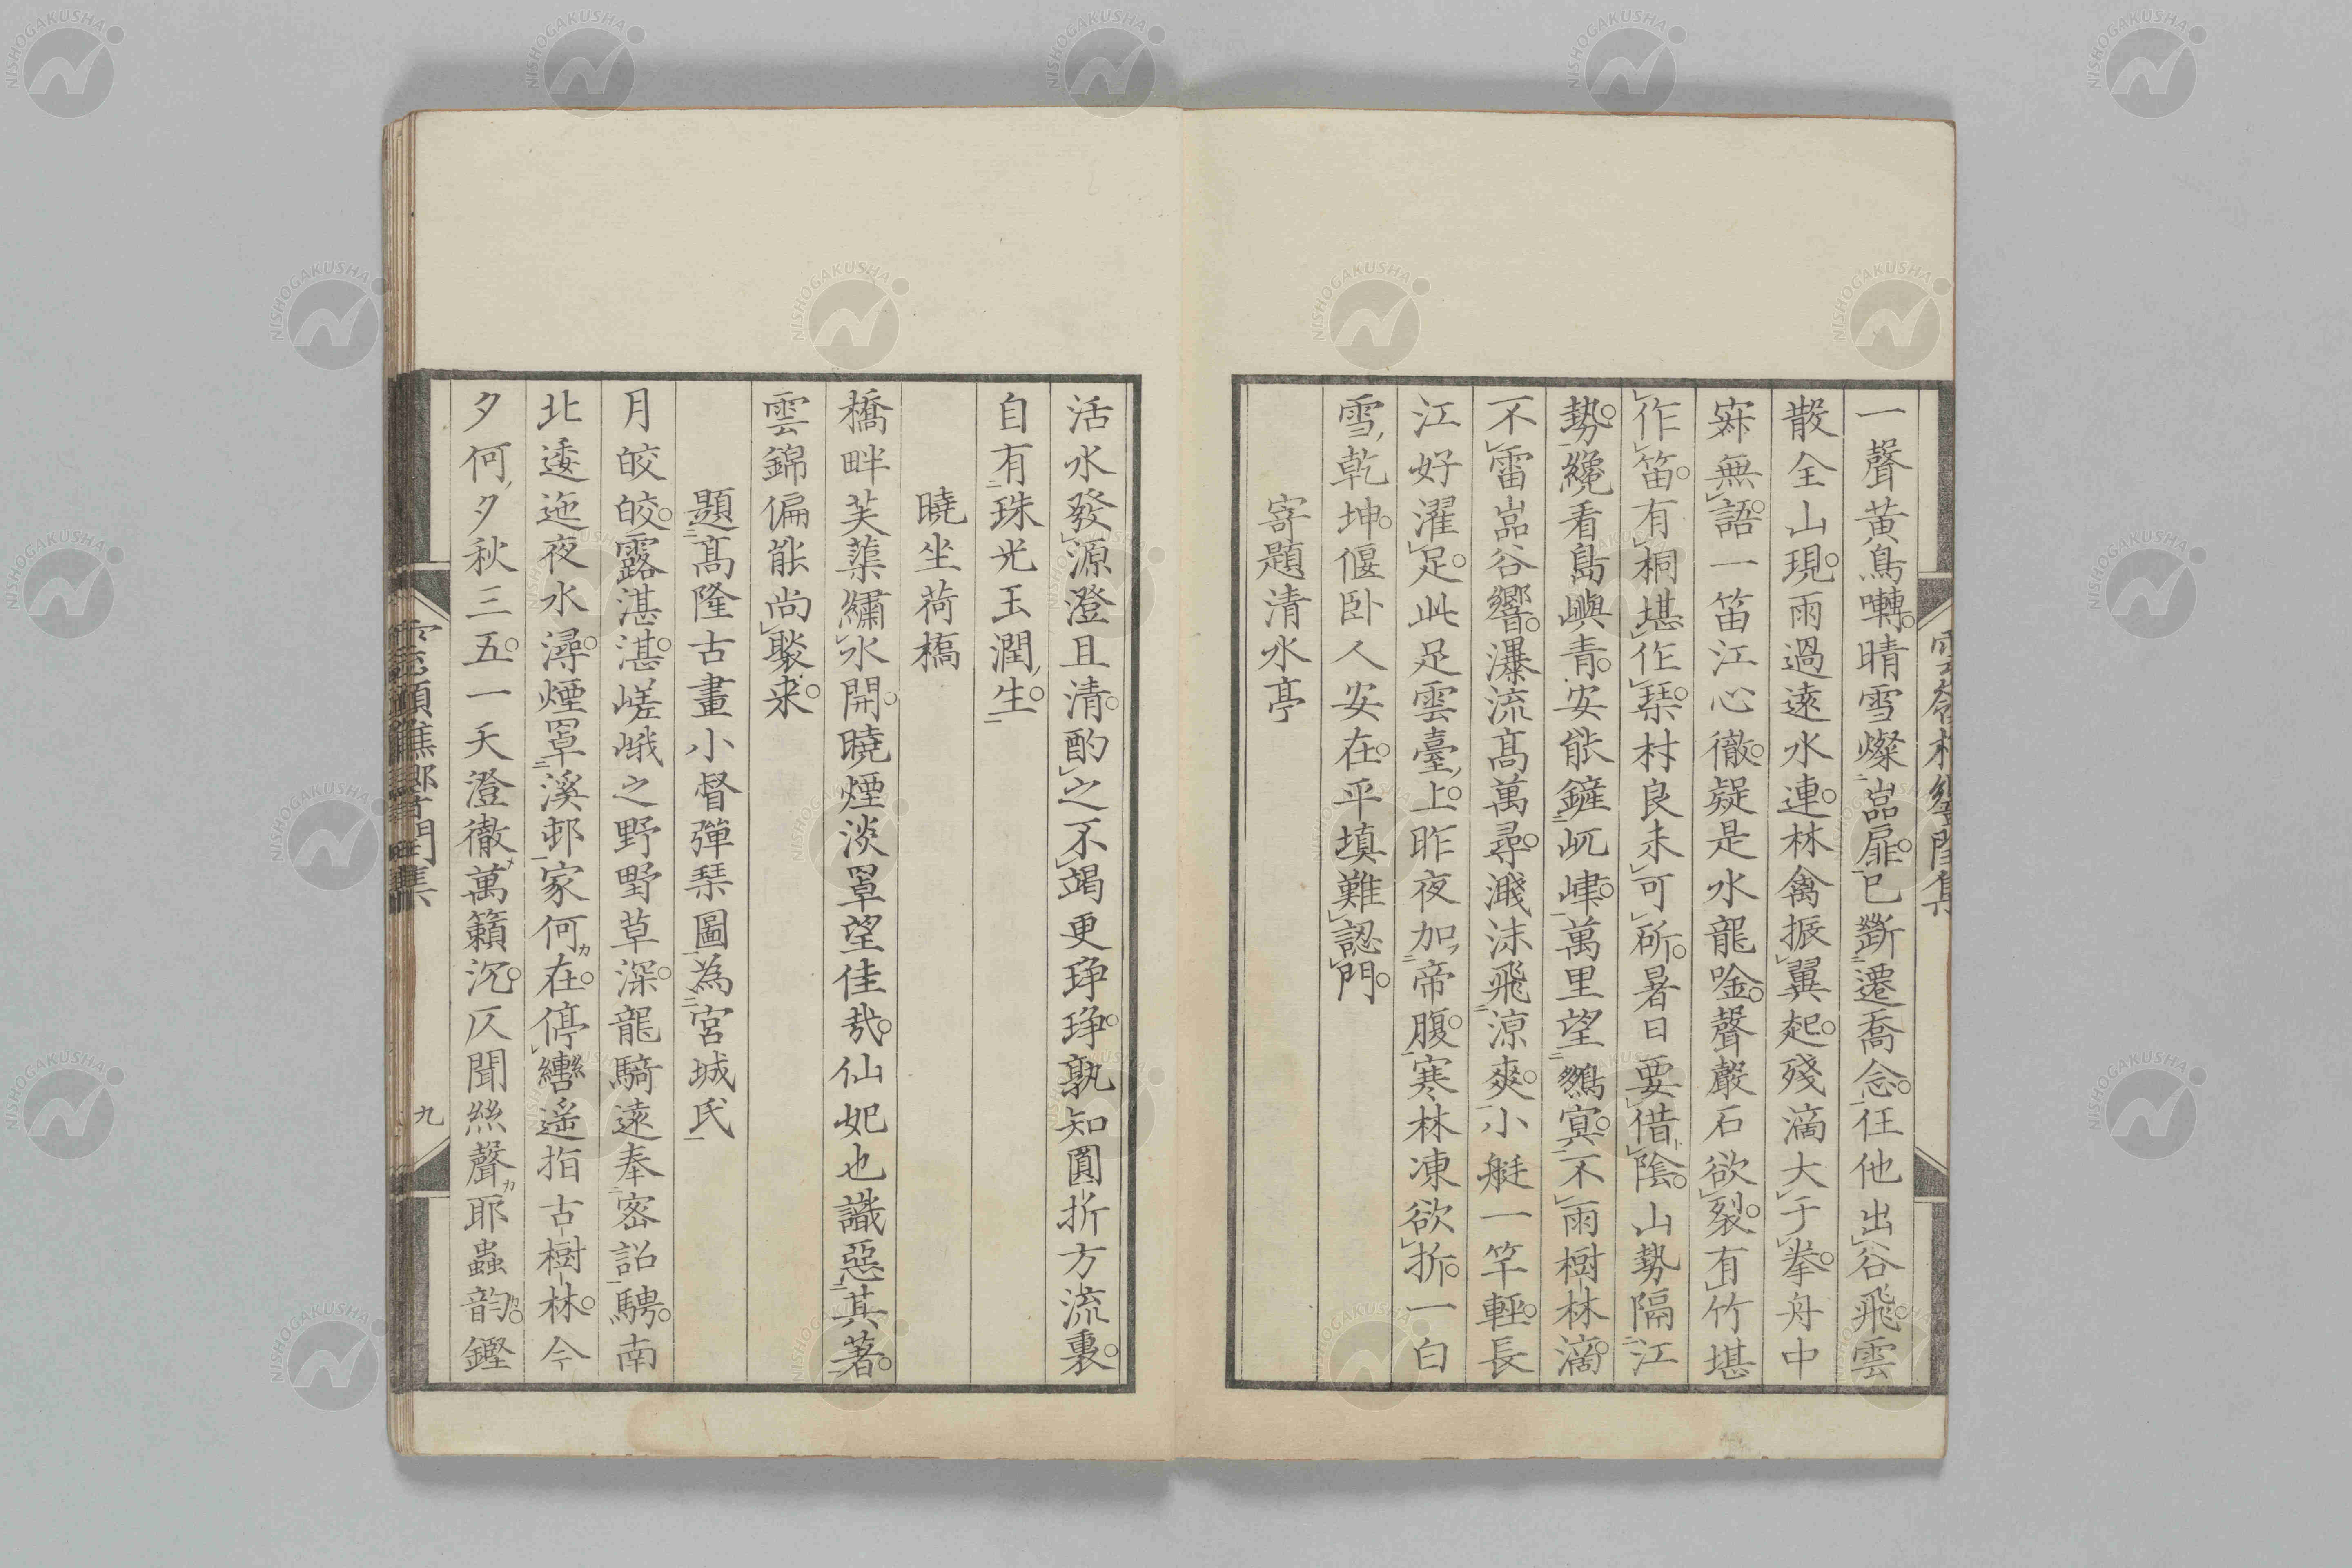 一聲黄鳥囀晴雪燦嵓扉已斷遷喬念任他出谷飛雲
散全山現雨過遠水連林禽振翼起殘滴大于拳舟中
寂無語一笛江心徹疑是水龍唫聲巖石欲裂有竹堪
作笛有桐堪作琹村良未可斫暑日要借陰山勢隔江
勢纔看島嶼青安能鏟屼嵂萬里望鷄寞不雨樹林滴
不雷嵓谷響瀑流髙萬尋濺沫飛涼爽小艇一竿輕長
江好濯足此足雲臺上昨夜加帝腹寒林凍欲折一白
雪乾坤偃卧人安在平填難認門
寄題清水亭
活水發源澄且清酌之不竭更琤琤孰知圓折方流裏
自有珠光玉潤生
曉坐荷橋
橋畔芙蕖繡水開曉煙淡罩望佳哉仙妃也識惡其著
雲錦偏能尚聚来
題髙隆古畫小督彈琹圖為宮城氏
月皎皎露湛湛嵯峨之野野草深龍騎遠奉密詔騁南
北逶迤夜水潯煙罩溪邨家何在停轡遥指古樹林今
夕何夕秋三五一天澄徹萬籟沉仄聞絲聲耶蟲韵鏗
九
NISHOGAKUSHA